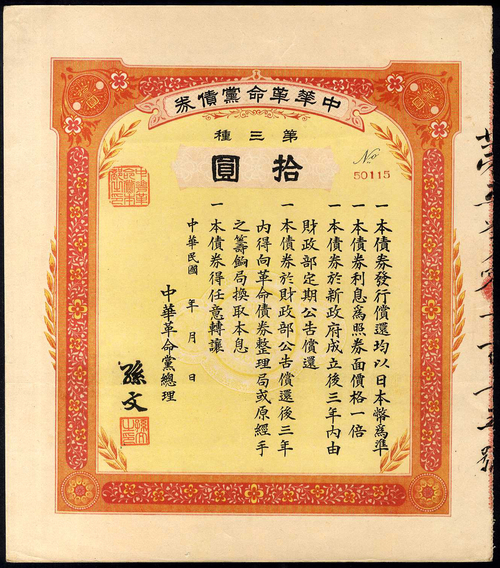 中華革命黨債券
第三種
拾圓
No
50115
一本債券發行償還均以日本幣爲準
一本債券利息爲照券面價格一倍
一本債券於新政府成立後三年內由
財政部定期公告償還
一本債券於財政部公告償還後三年
內得向革命債券整理局或原經手
之籌餉局換取本息
一本債券得任意轉讓
中華民國 年 月 日
中華革命黨總理
孫文